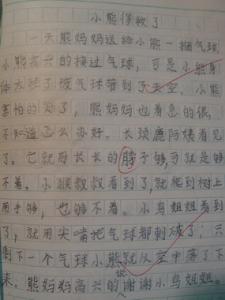 小熊得救了
一天熊妈妈送给小熊一捆气球
小熊高兴的接过气球，可是小熊身
体太轻了被气球带到了天空，小熊
害怕的哭了，熊妈妈也着急的很，
不知道怎么办好。长颈鹿阿姨看见
了。它就用长长的脖子够可就是够
不着。小猴叔叔看到了，就爬到树上
用手够，也够不着。小鸟姐姐看到
了，就用尖嘴把气球都刺破了，只
剩下一个气球小熊就从空中落了下
来。熊妈妈高兴的说谢谢小鸟姐姐。